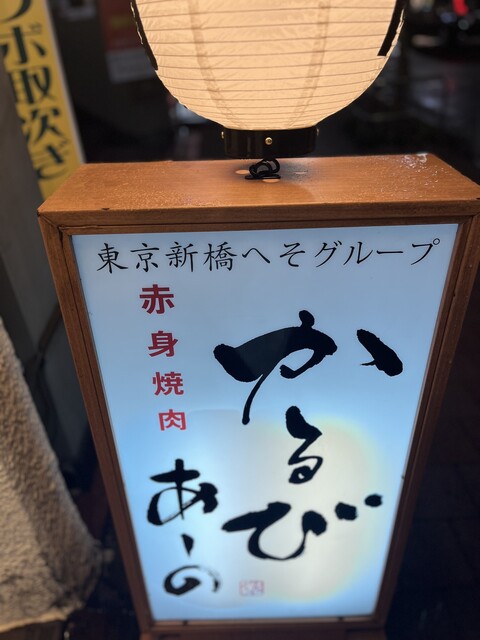 東京新橋へそグループ
かるび
赤身焼肉
あーの
ポ取次ぎ